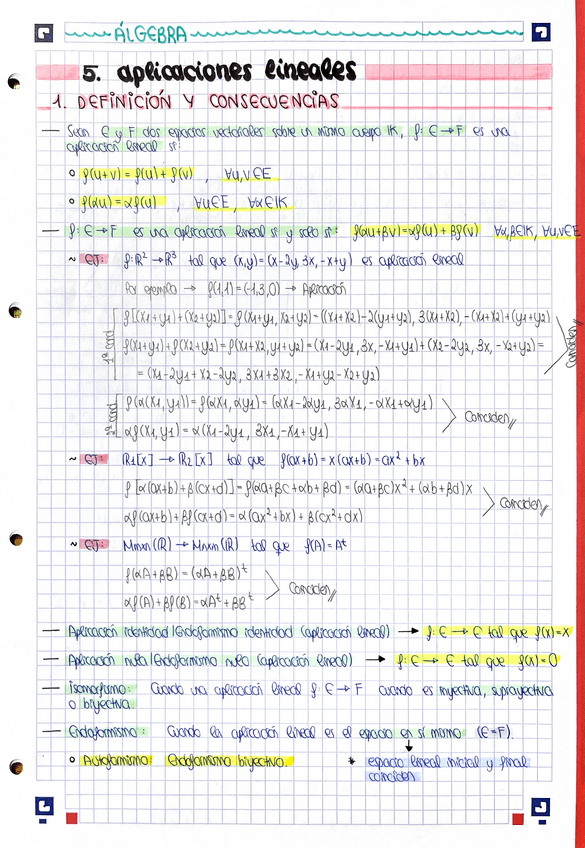 ÁLGEBRA
5. aplicaciones lineales
1. DEFINICIÓN Y CONSECUENCIAS
— Sean E y F dos espacios vectoriales sobre un mismo cuerpo IK, f: E → F es una
aplicación lineal si:
o f(u+v) = f(u) + f(v) , ∀u,v∈E
o f(αu) = αf(u) , ∀u∈E, ∀α∈IK
— f: E → F es una aplicación lineal si y solo si: f(αu+βv)=αf(u)+βf(v) ∀α,β∈IK, ∀u,v∈E
~ EJ: f: R² → R³ tal que (x,y) = (x-2y, 3x, -x+y) es aplicación lineal
Por ejemplo → f(1,1) = (-1,3,0) → Aplicación
1ª cond
f[(x1+y1)+(x2+y2)] = f(x1+y1, x2+y2) = ((x1+x2)-2(y1+y2), 3(x1+x2), -(x1+x2)+(y1+y2)
f(x1+y1)+f(x2+y2) = f(x1+x2, y1+y2) = (x1-2y1, 3x, -x1+y1)+(x2-2y2, 3x, -x2+y2) =
= (x1-2y1+x2-2y2, 3x1+3x2, -x1+y2-x2+y2)
Coinciden
2ª cond
f(α(x1,y1)) = f(αx1, αy1) = (αx1-2αy1, 3αx1, -αx1+αy1)
αf(x1,y1) = α(x1-2y1, 3x1, -x1+y1)
Coinciden
~ EJ: R1[x] → R2[x] tal que f(ax+b) = x(ax+b) = ax²+bx
f[α(ax+b)+β(cx+d)] = f(αa+βc+αb+βd) = (αa+βc)x²+(αb+βd)x
αf(ax+b)+βf(cx+d) = α(ax²+bx)+β(cx²+dx)
Coinciden
~ EJ: Mnxn(R) → Mnxn(R) tal que f(A)=Aᵗ
f(αA+βB) = (αA+βB)ᵗ
αf(A)+βf(B) = αAᵗ+βBᵗ
Coinciden
— Aplicación identidad/Endofomismo identidad (aplicación lineal) → f: E → E tal que f(x)=x
— Aplicación nula/Endofomismo nulo (aplicación lineal) → f: E → E tal que f(x)=0
— isomorfismo: Cuando una aplicación lineal f: E → F cuando es inyectiva, suprayectiva
o biyectiva.
— Endofomismo: Cuando la aplicación lineal es el espacio en sí mismo (E=F).
o Automorfismo: Endofomismo biyectivo.
* espacio lineal inicial y final
coinciden